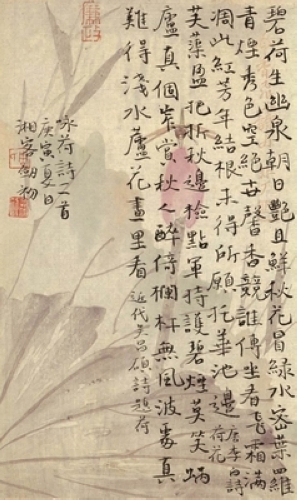 碧荷生幽泉朝日艷且鮮秋花冒綠水密葉羅
青煙秀色空絕世馨香競誰傳坐看飛霜滿
凋此紅芳年結根未得所願托華池邊 唐李白詩荷花
芙蕖盈把折秋邊檢點軍持護碧煙莫笑炳
廬真個窄賞秋人醉倚欄杆無風波處真
難得淺水蘆花畫里看 近代吳昌碩詩題荷
咏荷詩二首
庚寅夏日
湘客